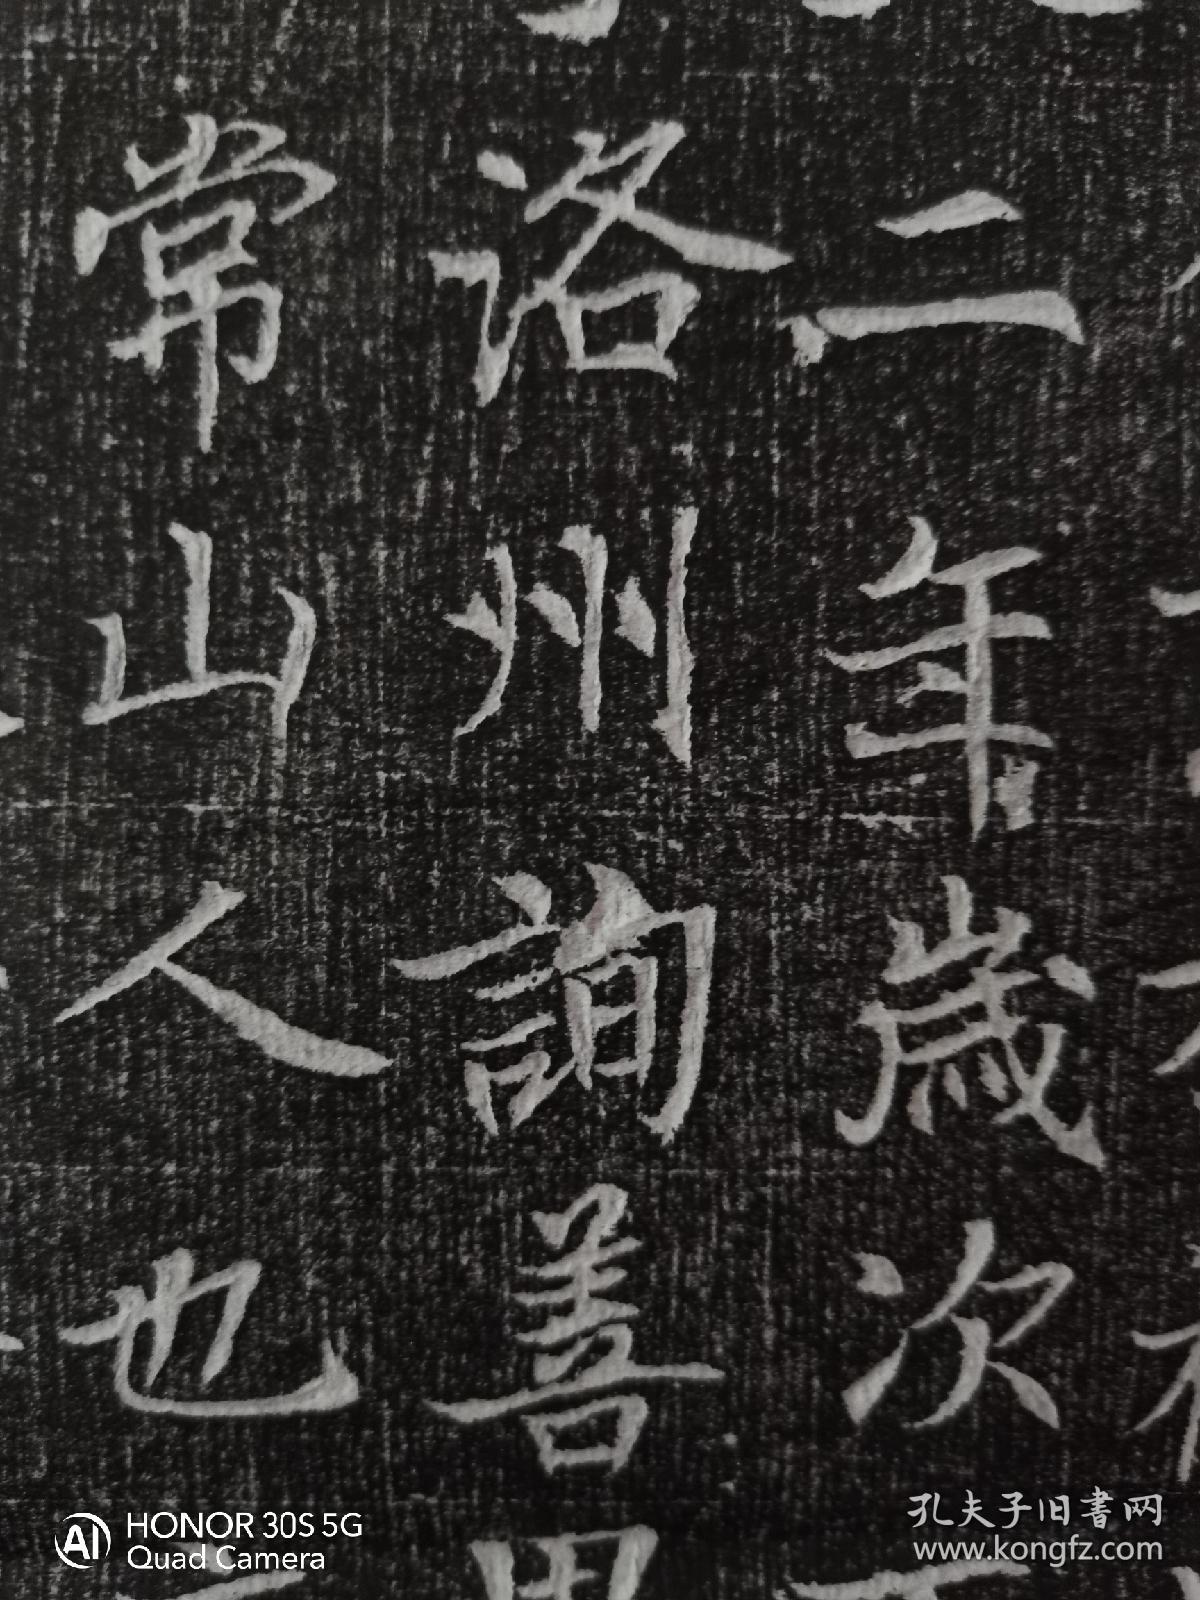 二年歲次
洛州詢善
常山人也
HONOR 30S 5G
Quad Camera
孔夫子旧書网
www.kongfz.com